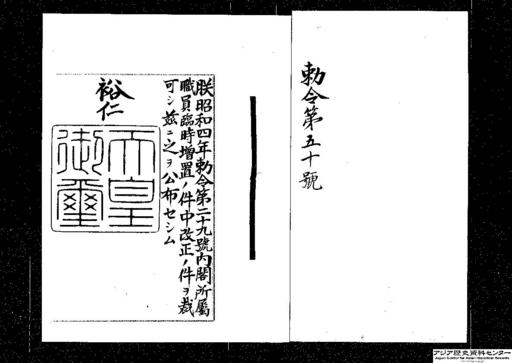 勅令第五十號
朕昭和四年勅令第二十九號內閣所屬
職員臨時增置ノ件中改正ノ件ヲ裁
可シ玆ニ之ヲ公布セシム
裕仁
天皇
御璽
アジア歴史資料センター
Japan Center for Asian Historical Records